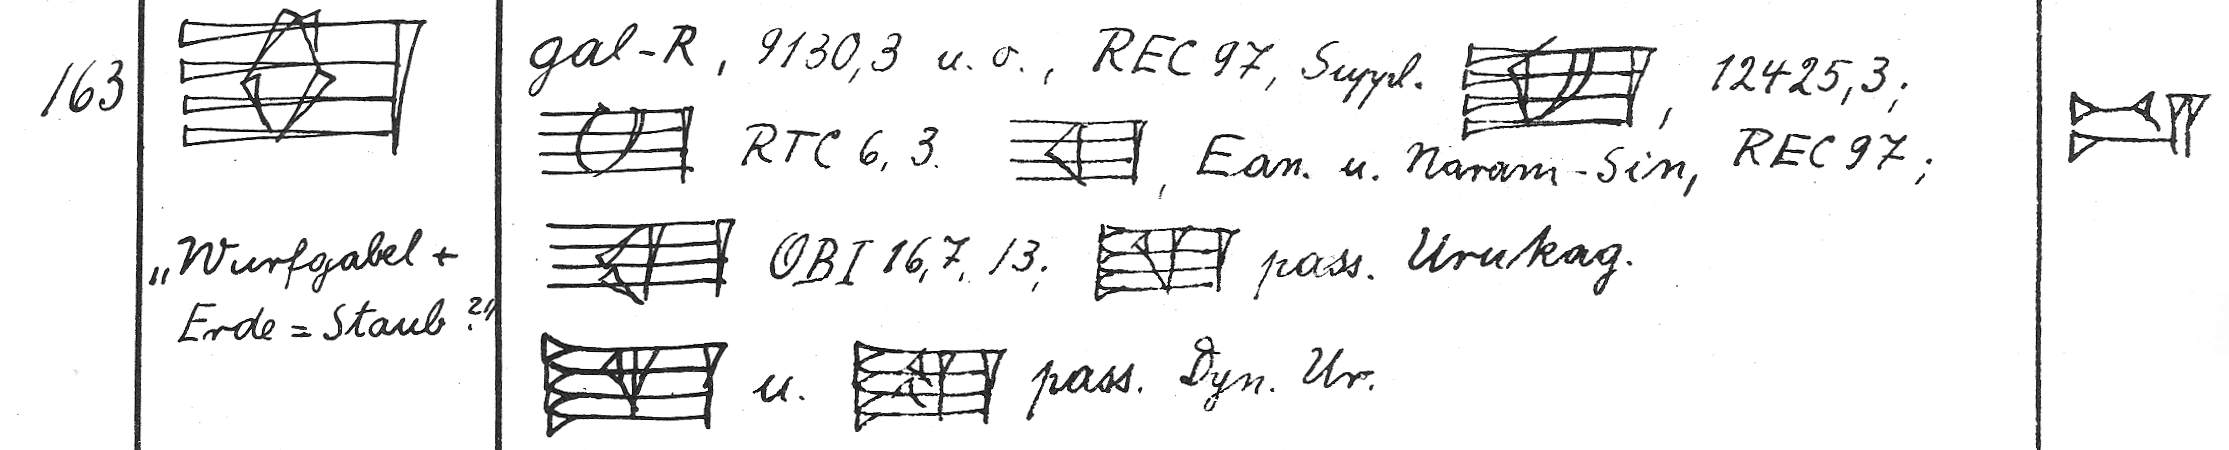 163
„Wurfgabel +
Erde = Staub?“
gal-R, 9130,3 u. o., REC 97, Suppl. , 12425,3;
RTC 6, 3. , Ean. u. Naram-Sin, REC 97;
OBI 16,7, 13; pass. Urukag.
u. pass. Dyn. Ur.